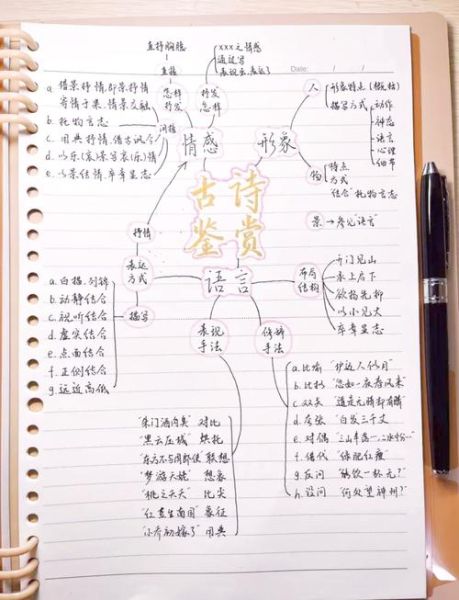 直抒胸臆
直接
怎样
抒发
间接
a. 借景抒情、即景抒情
寄情于景、情景交融
b. 托物言志
c. 用典抒情、借古讽今
d. 以乐(哀)景写哀(乐)情
e. 以景结情、卒章显志
xxx之情感
通过写
表现出、表达了
抒发
怎样
情感
Date:
人
形象特点(概括)
描写方式
动作
神态
语言
心理
细节
形象
物
特点
方式
结合"托物言志
景→参见语言
古诗
鉴赏
语言
抒情
表达
方式
描写
a. 白描、列锦
b. 动静结合
c. 视听结合
d. 虚实结合
e. 点面结合
f. 正侧结合
g. 远近高低
布局
结构
开门见山
承上启下
欲扬先抑
以小见大
卒章显志
表现
手法
"朱门酒肉臭" 对比
"黑云压城" 烘托
"东风不与周郎便 联想
"梦游天姥" 想象
"桃之夭夭" 比兴
"红豆生南国" 象征
"小乔初嫁了" 用典
修辞
手法
a. 比喻 "垆边人似月"
b. 比拟 "忽如一夜春风来"
c. 双关 "道是无晴却有晴"
d. 夸张 "白发三千丈"
e. 对偶 "三山半落…二水中分…"
f. 借代 "绿肥红瘦"
g. 反问 "能饮一杯无?"
h. 设问 "何处望神州?"